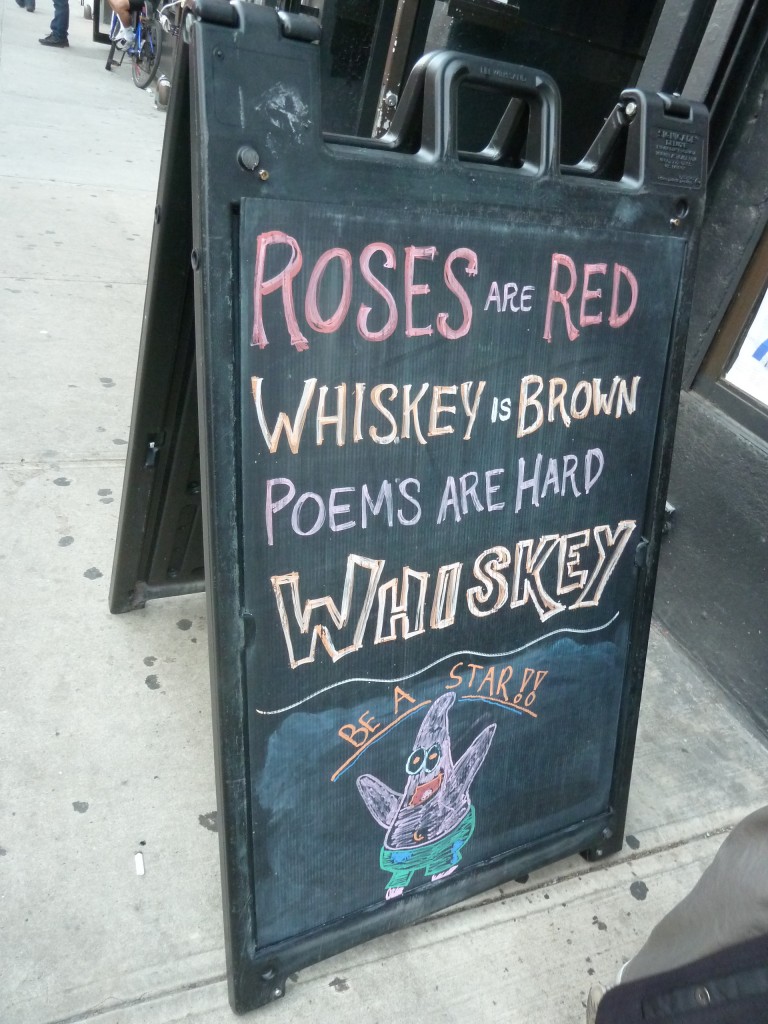 ROSES ARE RED
WHISKEY IS BROWN
POEM'S ARE HARD
WHISKEY
BE A STAR!!